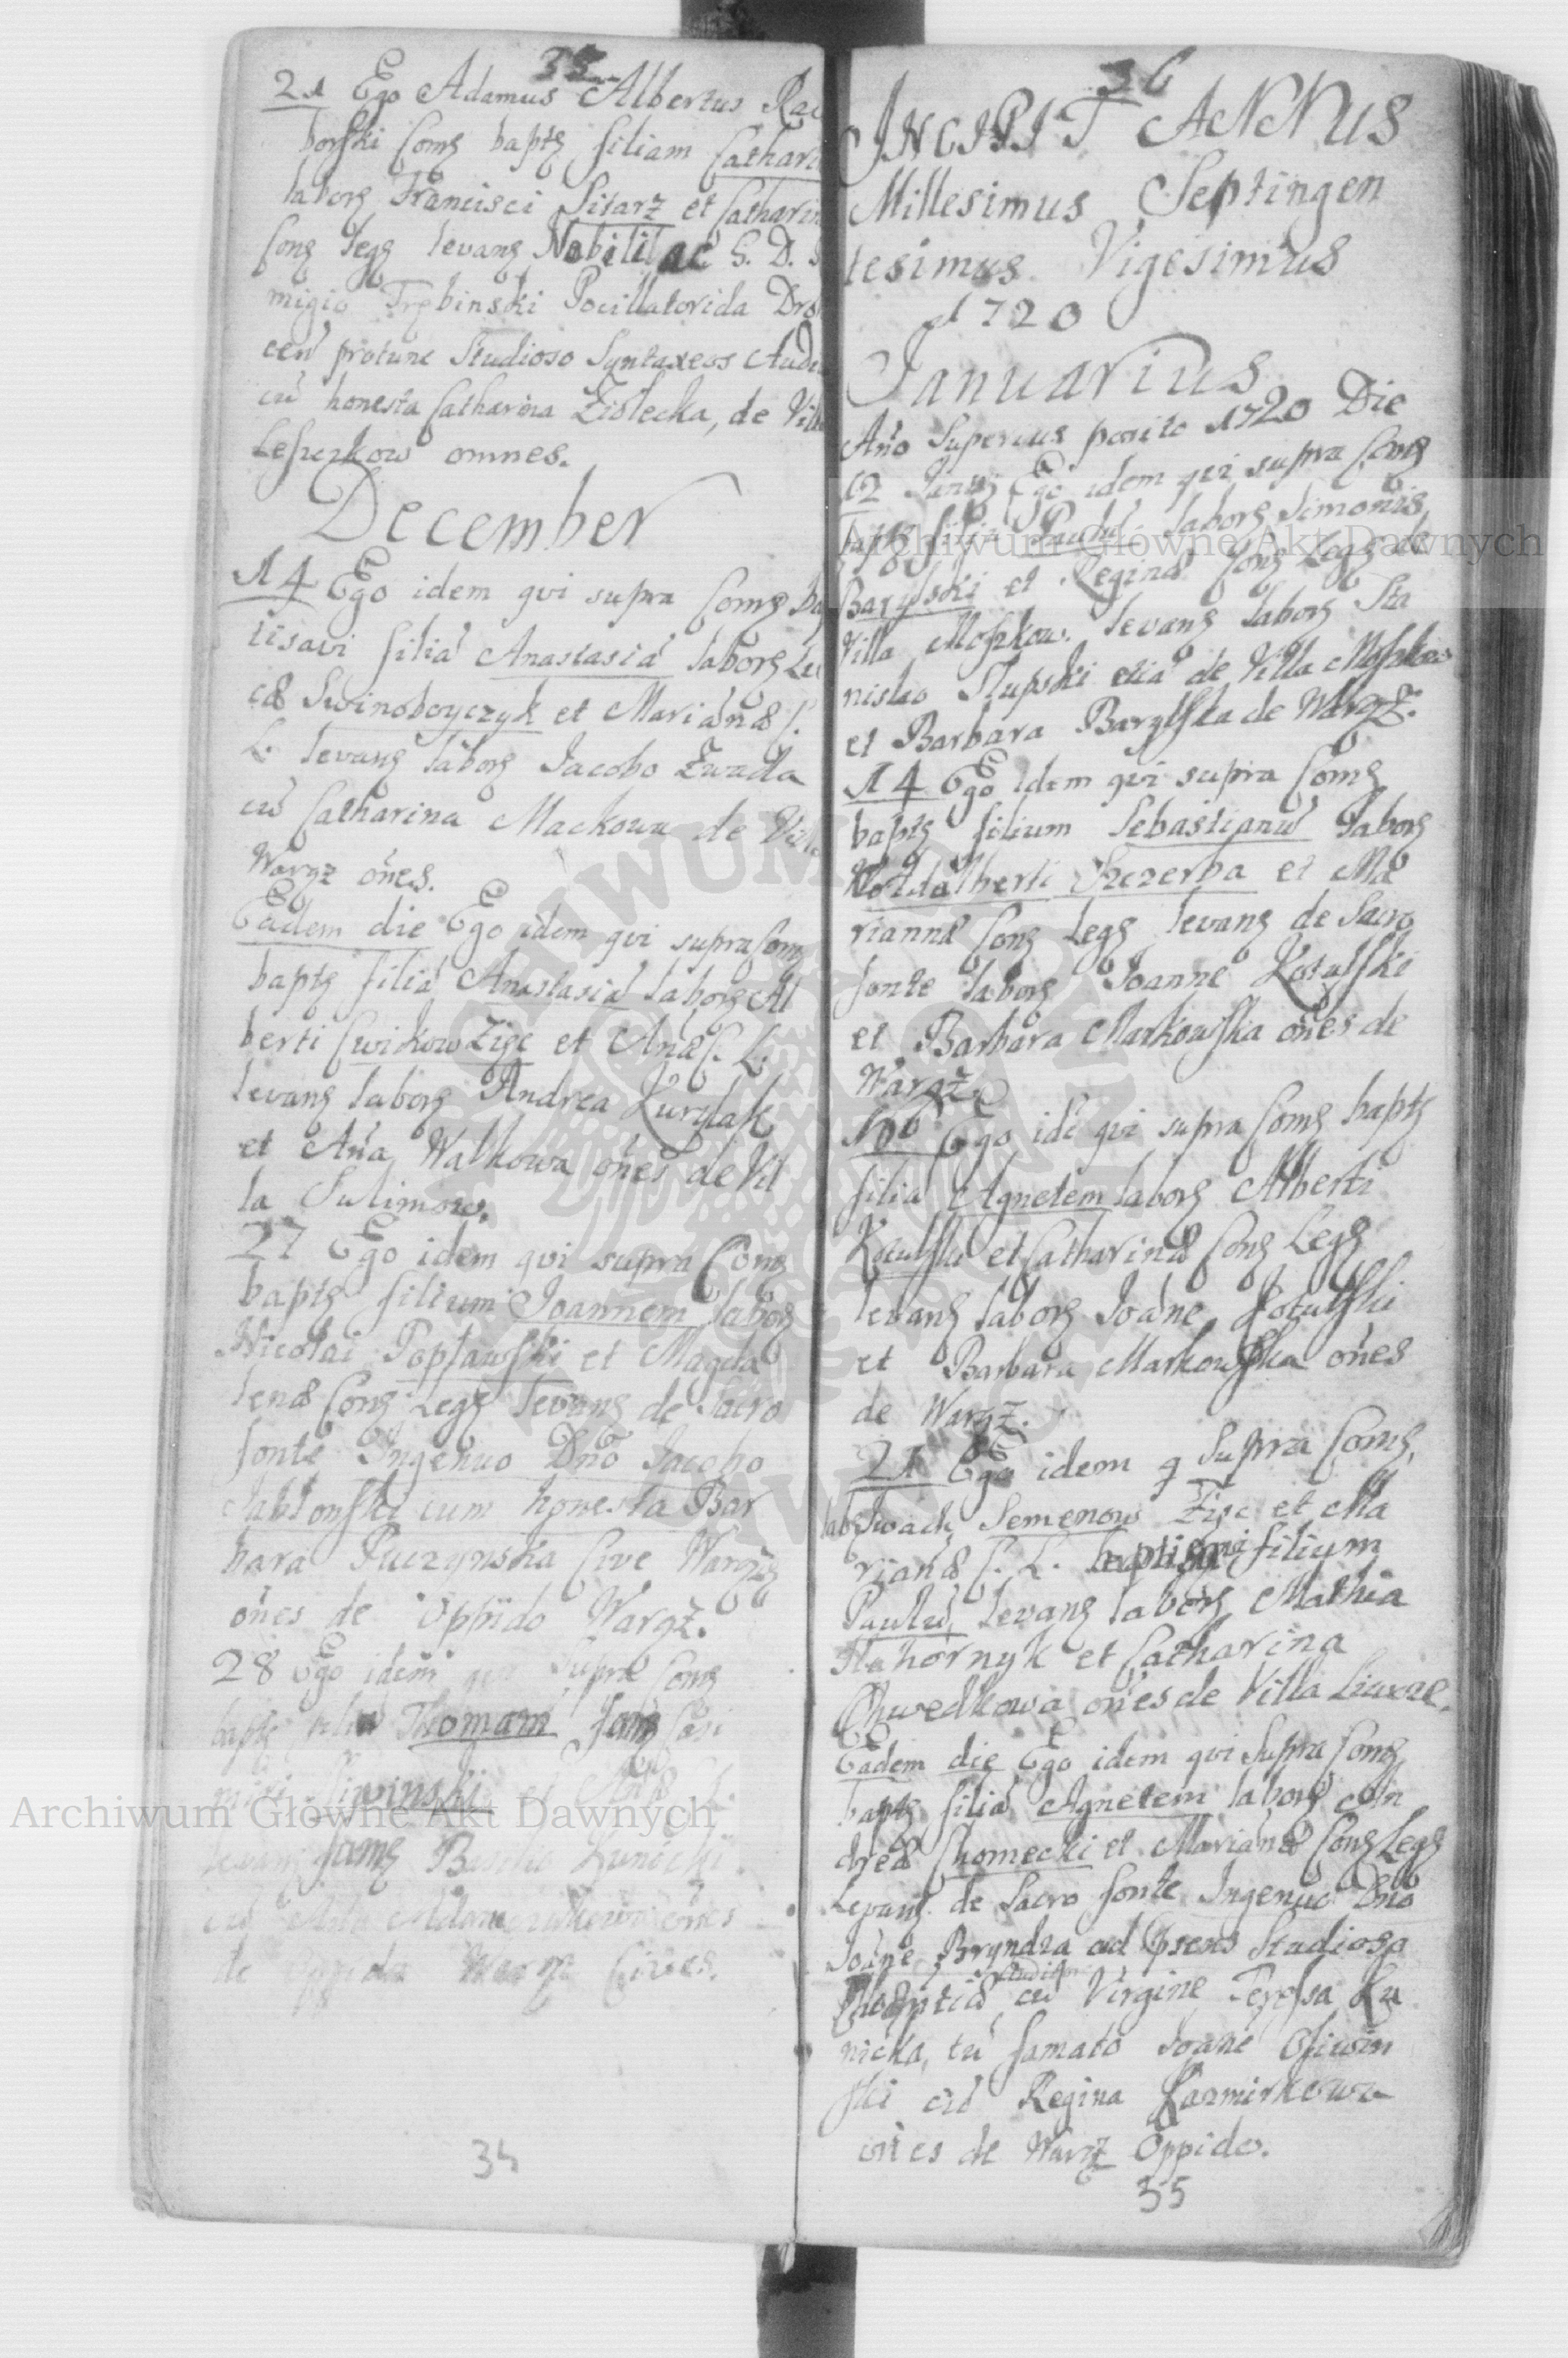 35
21 Ego Adamus Albertus Rac
borski Comg baptg filiam Cathari
laborg Francisci Sitarz et Catharin
Cong Legg levang Nobilitac G. D.
migio Trębinski Pocillatorida Dro
cen protunc Studioso Syntaxeos Aude
cū honesta Catharina Ziolecka, de Vill
Leszczkow omnes.
December
14 Ego idem qvi supra Comg bap
tisavi filiā Anastasiā laborg Lu
cæ Swinoboyczyk et Mariānæ C.
L. levang laborg Jacobo Zwada
cū Catharina Mackowa de Villa
Waręz oñes.
Eadem die Ego idem qvi supra Comg
baptg filiā Anastasiā laborg Al
berti Cwikow Zięc et Añæ C. L.
levang laborg Andrea Kurylak
et Aña Walkowa oñes de Vil
la Sulimow.
27 Ego idem qvi supra Comg
baptg filium Joannem laborg
Nicolai Popławski et Magda
lenæ Cong Legg levang de Sacro
fonte Ingenuo Dño Jacobo
Jabłonski cum honesta Bar
bara Puczynska Cive Waręzg
oñes de Oppido Waręz.
28 Ego idem qvi Supra Comg
baptg filiū Thomam famg Casi
miri Siwinski et Añæ C. L.
levang famg
cū Aña
de Oppido Waręz Cives.
34
36
INCIPIT ANNUS
Millesimus Septingen
tesimus Vigesimus
1720
Januarius
Año Superius posito 1720 Die
12 Janug Ego idem qvi supra Comg
baptg filiū Paulū laborg Simonis
Barylski et Reginæ Cong Legg de
Villa Moszkow. levang laborg Sta
nislao Słupski etiā de Villa Moszkow
et Barbara Barylska de Waręz.
14 Ego idem qvi supra Comg
baptg filium Sebastianū laborg
Woldalberti Szczerba et Ma
riannæ Cong Legg levang de Sacro
fonte laborg Joanne Kotulski
et Barbara Markowska oñes de
Waręz.
16 Ego idē qvi supra Comg baptg
filiā Agnetem laborg Alberti
Kotulski et Catharinæ Cong Legg
levang laborg Joāne Kotulski
et Barbara Markowska oñes
de Waręz.
21 Ego idem q Supra Comg
labg Iwach Semenow Zięc et Ma
rianæ C. L. baptisavi filium
Paulū, levang laborg Mathia
Nahornyk et Catharina
Chwedkowa oñes de Villa Liwcze.
Eadem die Ego idem qvi Supra Comg
baptg filiā Agnetem laborg An
dreæ Chomecki et Mariānæ Cong Legg
Levang de Sacro fonte Ingenuo Dño
Joāne Bryndza ad Præsens Studioso
cū Virgine Teressa Ku
nicka, tū famato Joāne Osiwin
ski cū Regina Kazmirkowa
oñes de Waręz Oppido.
35
Archiwum Główne Akt Dawnych
Archiwum Główne Akt Dawnych